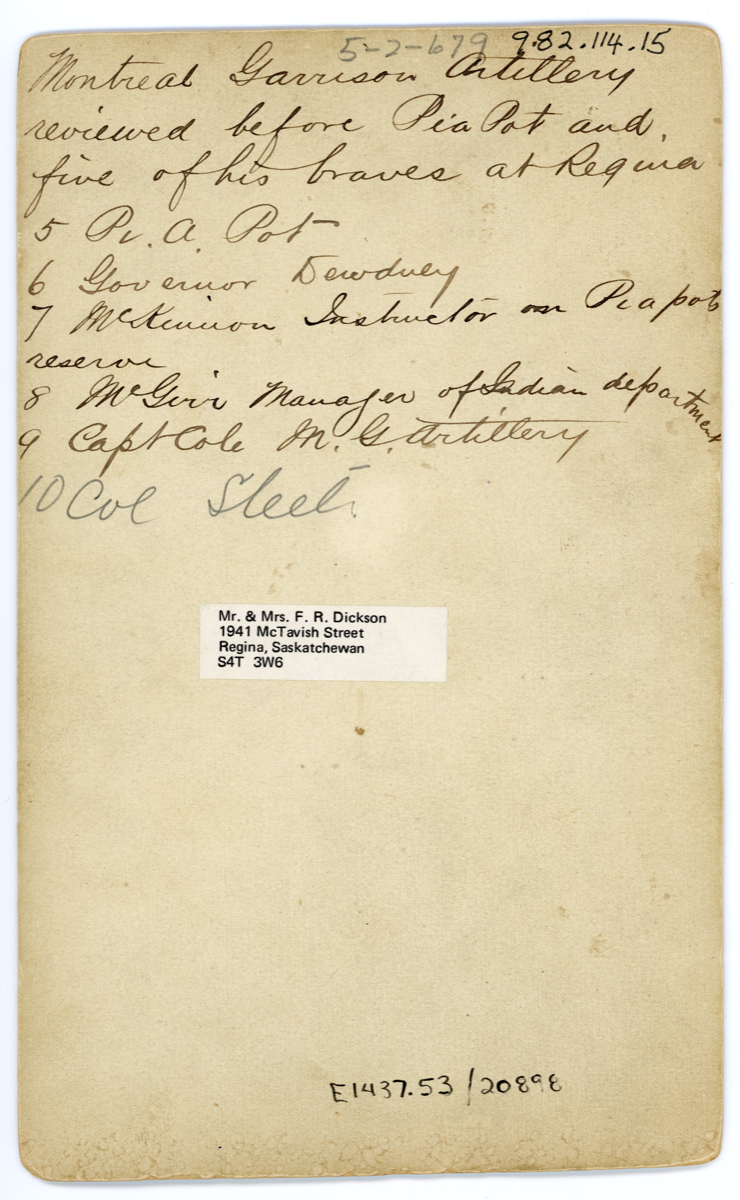 5-2-679 982.114.15
Montreal Garrison Artillery
reviewed before Pia Pot and
five of his braves at Regina
5 Pi. A. Pot
6 Governor Dewdney
7 McKinnon Instructor on Piapots
reserve
8 McGirr Manager of Indian department
9 Capt Cole M. G. Artillery
10 Col Steet.
Mr. & Mrs. F. R. Dickson
1941 McTavish Street
Regina, Saskatchewan
S4T 3W6
E1437.53/20898